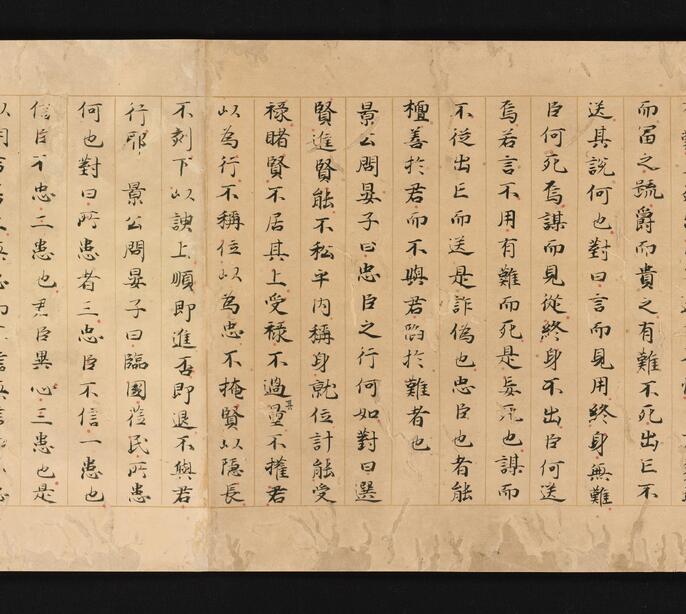 而冨之疏爵而貴之有難不死出亡不
送其說何也對曰言而見用終身無難
臣何死焉謀而見從終身不出臣何送
焉若言不用有難而死是妄死也謀而
不從出亡而送是詐偽也忠臣也者能
檀善於君而不與君陷於難者也
景公問晏子曰忠臣之行何如對曰選
賢進賢能不私乎内稱身就位計能受
禄睹賢不居其上受禄不過其量不權君
以為行不稱位以為忠不掩賢以隠長
不刻下以諛上順即進否即退不與君
行邪 景公問晏子曰臨國莅民所患
何也對曰所患者三忠臣不信一患也
信臣不忠二患也君臣異心三患也是